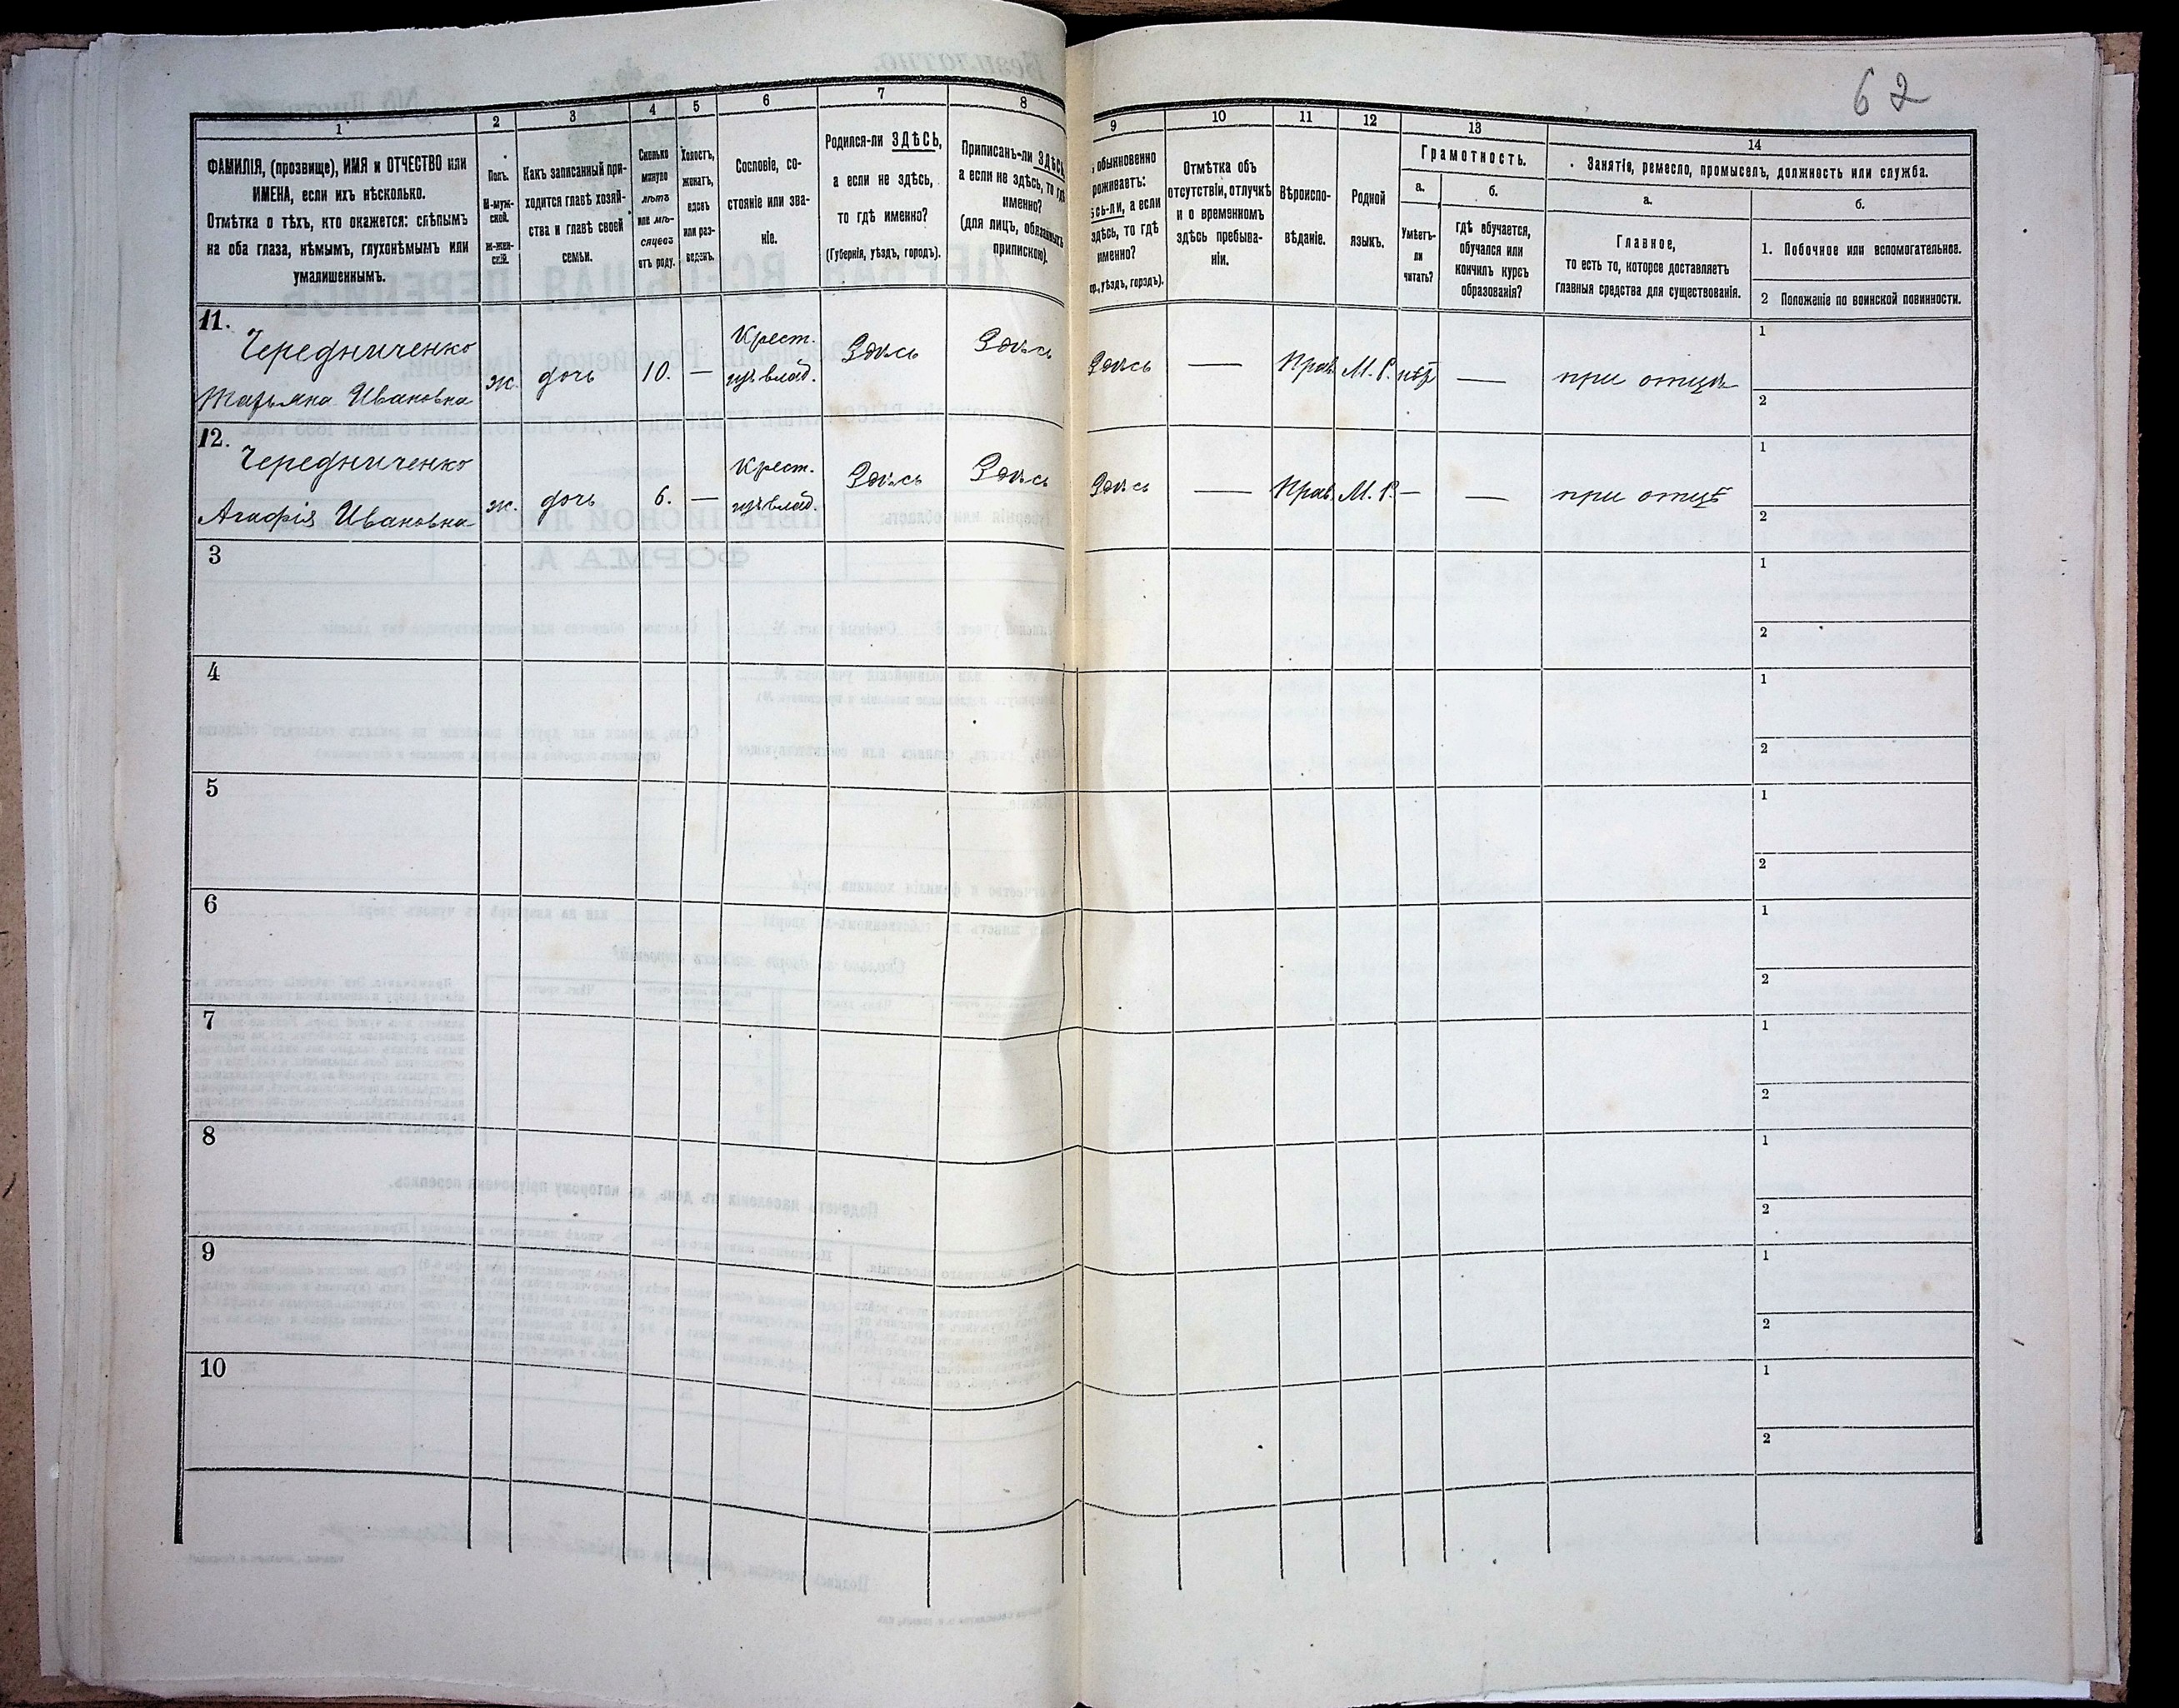 62
1
2
3
4
5
6
7
8
9
10
11
12
13
14
ФАМИЛІЯ, (прозвище), ИМЯ и ОТЧЕСТВО или
ИМЕНА, если ихъ нѣсколько.
Отмѣтка о тѣхъ, кто окажется: слѣпымъ
на оба глаза, нѣмымъ, глухонѣмымъ или
умалишеннымъ.
Полъ.
М-муж-
ской.
Ж-жен-
скій.
Какъ записанный при-
ходится главѣ хозяй-
ства и главѣ своей
семьи.
Сколько
минуло
лѣтъ
или мѣ-
сяцевъ
отъ роду.
Холостъ,
женатъ,
вдовъ
или раз-
веденъ.
Сословіе, со-
стояніе или зва-
ніе.
Родился-ли ЗДѢСЬ,
а если не здѣсь,
то гдѣ именно?
(Губернія, уѣздъ, городъ).
Приписанъ-ли ЗДѢСЬ
а если не здѣсь, то гдѣ
именно?
(для лицъ, обязанныхъ
припискою).
обыкновенно
роживаетъ:
сь-ли, а если
здѣсь, то гдѣ
именно?
уѣздъ, городъ).
Отмѣтка объ
отсутствіи, отлучкѣ
и о временномъ
здѣсь пребыва-
ніи.
Вѣроиспо-
вѣданіе.
Родной
языкъ.
Грамотность.
а.
б.
Умѣетъ-
ли
читать?
гдѣ обучается,
обучался или
кончилъ курсъ
образованія?
Занятіе, ремесло, промыселъ, должность или служба.
а.
б.
Главное,
то есть то, которое доставляетъ
главныя средства для существованія.
1. Побочное или вспомогательное.
2 Положеніе по воинской повинности.
11.
Чередниченко
Татьяна Ивановна
ж. дочь 10. — Крест.
Здѣсь Здѣсь Здѣсь — Прав. М. Р. нѣт — при отцѣ
1
2
12.
Чередниченко
Агафія Ивановна
ж. дочь 6. — Крест.
Здѣсь Здѣсь Здѣсь — Прав. М. Р. — — при отцѣ
1
2
3
1
2
4
1
2
5
1
2
6
1
2
7
1
2
8
1
2
9
1
2
10
1
2